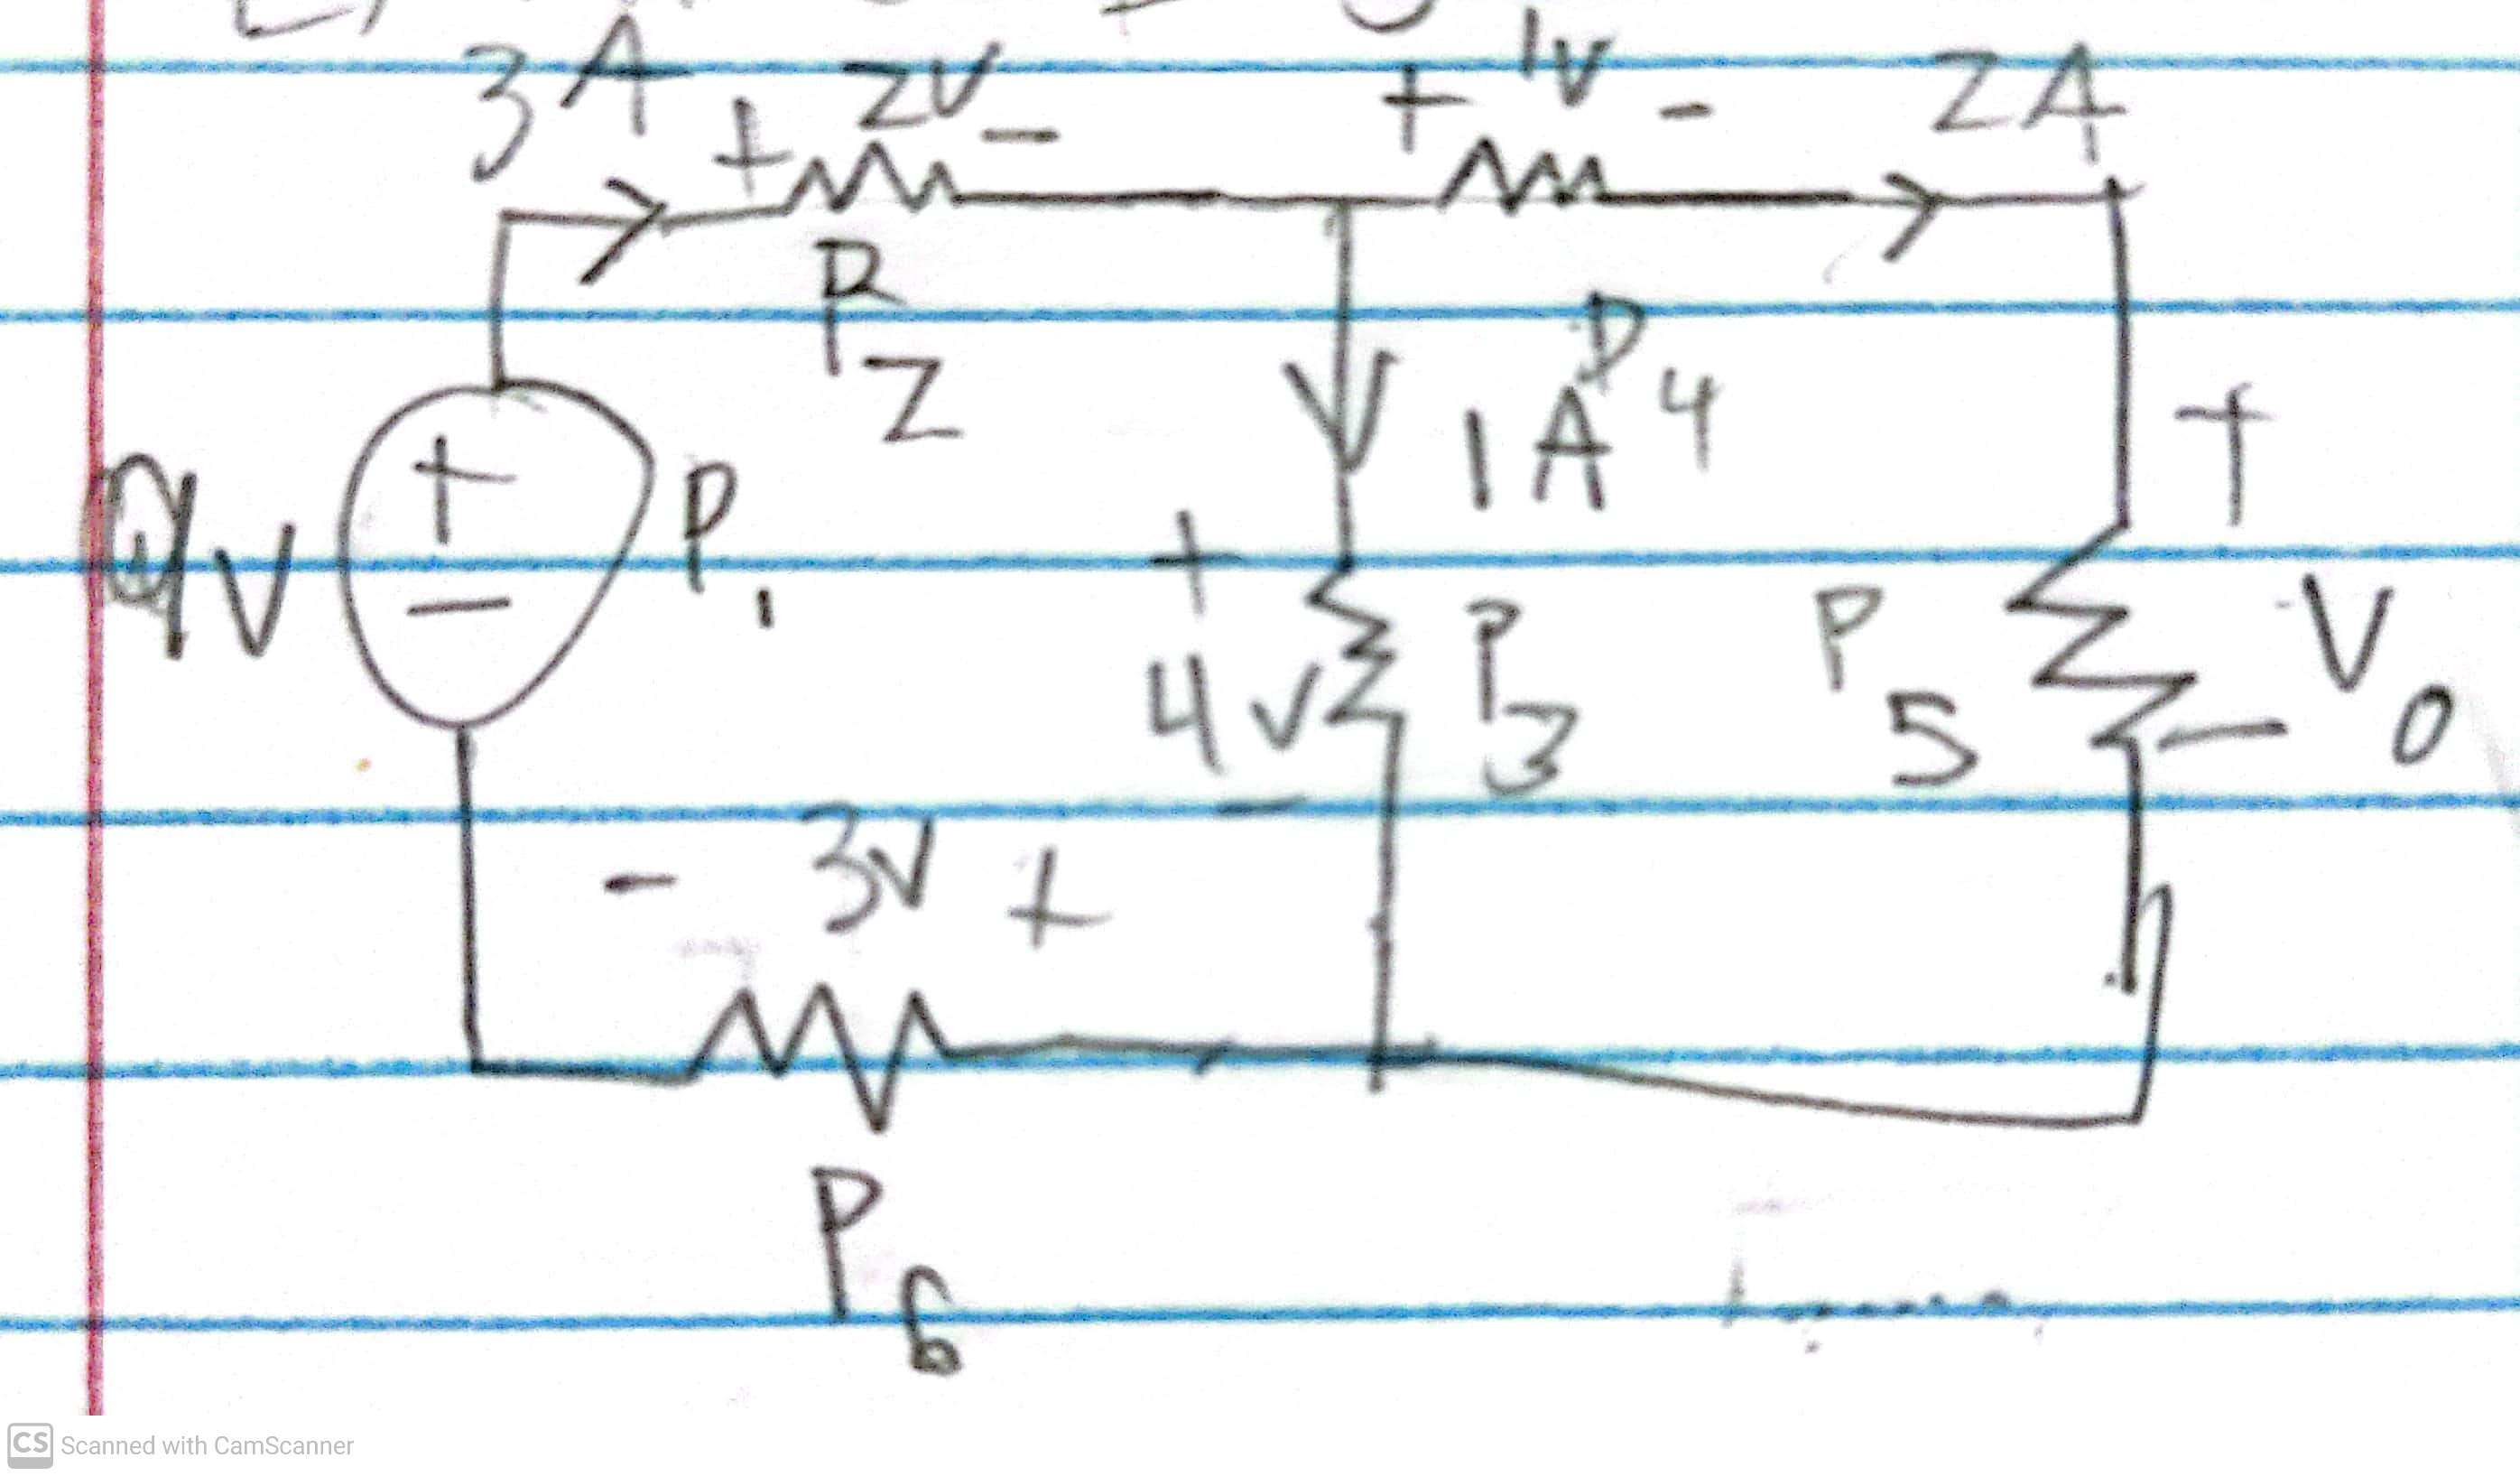 3A + 2V - + 1V - 2A
P2
P4
1A
+
+
9V
-
P1
+
4V
-
P3
+
P5
-
V0
- 3V +
P6
CS Scanned with CamScanner